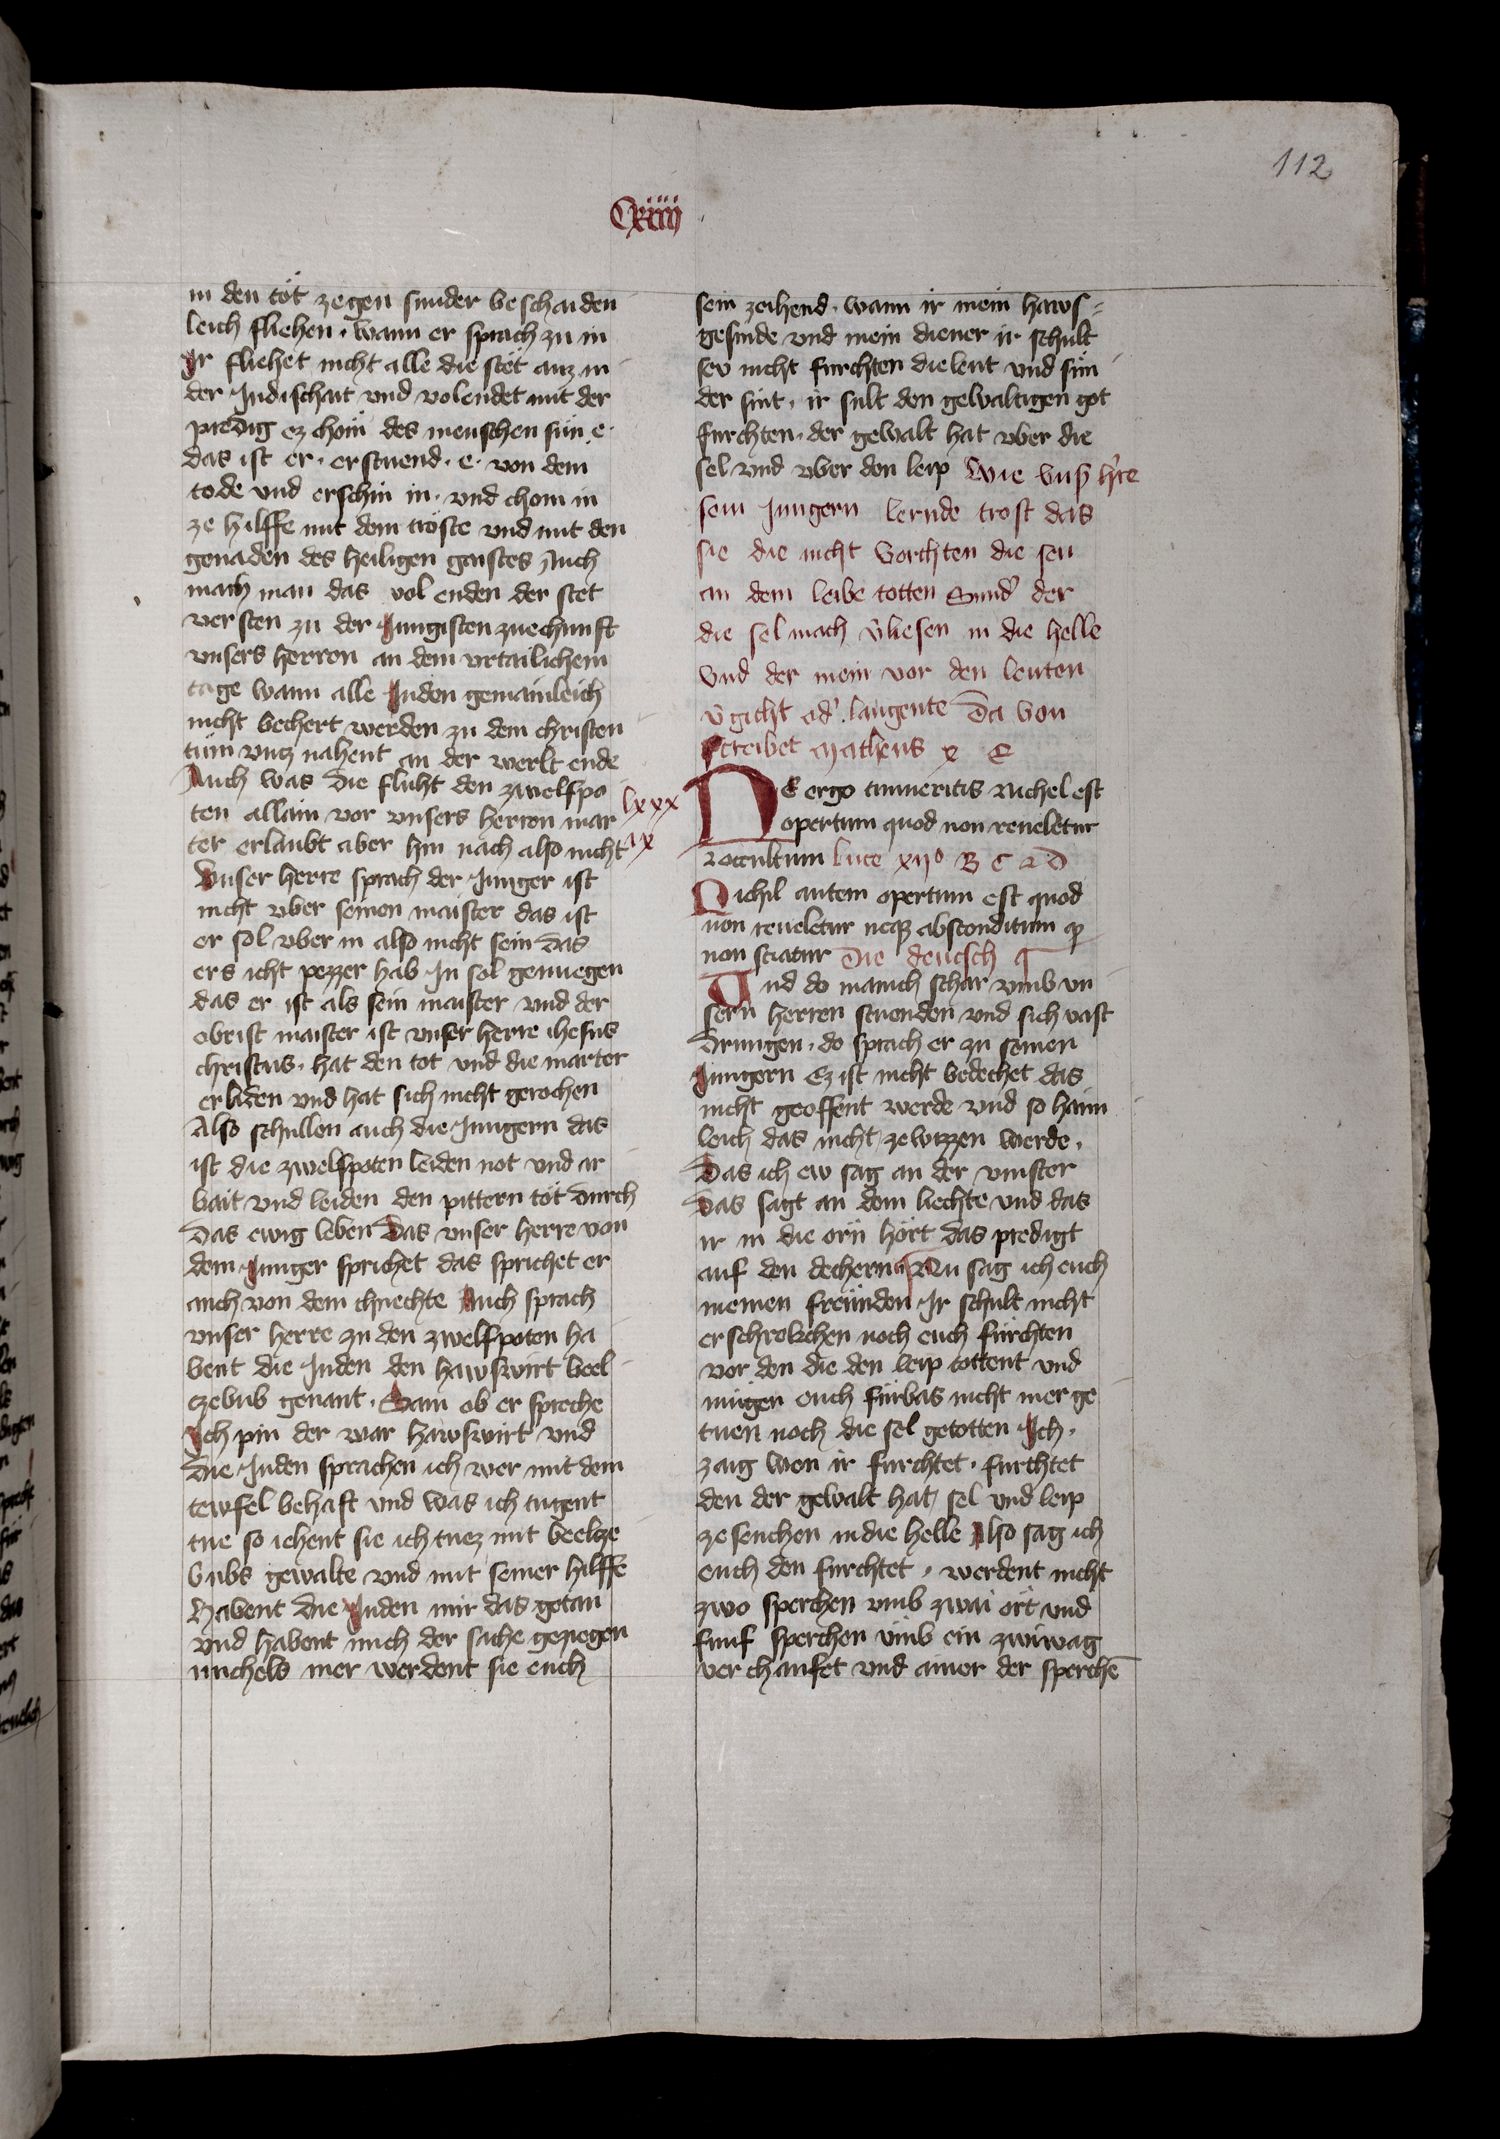 112
Cxiiij
in den töt zegen sunder beschaiden
leich fliehen · wann er sprach zu in
Ir fliehet nicht alle die stët ancz in
der Judischait vnd volendet mit der
predig ez chöm des menschen sün · e ·
das ist er · erstuend · e · von dem
tode vnd erschin in · vnd chom in
ze hilffe mit dem tröste vnd mit den
genaden des heiligen geistes Auch
mach man das vol enden der stet
versten zu der Jungisten zuechunft
vnsers herren an dem vrtailichem
tage wann alle Juden gemainleich
nicht bechert werden zu dem christen
tüm vncz nahent an der werlt ende
Auch was die flucht den zwelfpo
ten allain vor vnsers herren mar
ter erlaubt aber hin näch also nicht
Vnser herre sprach der Junger ist
nicht vber seinen maister das ist
er sol vber in also nicht sein das
ers icht pezzer hab In sol genuegen
das er ist als sein maister vnd der
obrist maister ist vnser herre ihesus
christus · hat den tot vnd die marter
erliden vnd hat sich nicht gerochen
Also schullen auch die Jungern das
ist die zwelfpoten leiden not vnd ar
bait vnd leiden den pittern töt durch
das ewig leben Das vnser herre von
dem Junger sprichet das sprichet er
auch von dem chnechte Auch sprach
vnser herre zu den zwelfpoten ha
bent die Juden den hawswirt beel
czebub genant · Sam ob er spreche
Ich pin der war hawswirt vnd
die Juden sprachen ich wer mit dem
tewfel behaft vnd was ich tugent
tue so iehent sie ich tuez mit beelcze
bubs gewalte vnd mit seiner hilffe
Habent die Juden mir das getan
vnd habent mich der sache gezigen
michels mer werdent sie euch
lxxx
ix
sein zeihend · wann ir mein haws-
gesinde vnd mein diener ir schult
sev nicht furchten die leut vnd sün
der sint · ir sult den gewaltigen got
furchten · der gewalt hat vber die
sel vnd vber den leip Wie vnß hre
sein Jungern lernde trost das
sie die nicht vorchten die sev
an dem leibe totten Sund der
die sel mach vliesen in die helle
Vnd der mein vor den leuten
vgicht od laugente Da von
schreibet Matheus x C
NE ergo timueritis Nichel est
opertum quod non reueletur
2 occultum luce xijo B C 2 D
Nichil autem opertum est quod
non reueletur neq absconditum q
non sciatur Die deutsch ¶
Vnd do manich schar vmb vn
sern herren stuenden vnd sich vast
drungen · do sprach er zu seinen
Jungern Ez ist nicht bedechet das
nicht geoffent werde vnd so haim
leich das nicht zewizzen werde ·
Das ich ew sag an der vinster
das sagt an dem liechte vnd das
ir in die orn hört das predigt
auf den dechern ¶ Nu sag ich euch
meinen freünden Ir schult nicht
erschrekchen noch euch fürchten
vor den die den leip tottent vnd
mügen euch fürbas nicht mer ge
tuen noch die sel getotten Ich ·
zaig wen ir furchtet · furchtet
den der gewalt hat sel vnd leip
ze senchen in die helle Also sag ich
euch den furchtet · werdent nicht
zwo sperchen vmb zwai ört vnd
funf sperchen vmb ein zwiwag
verchaufet vnd ainer der sperchē